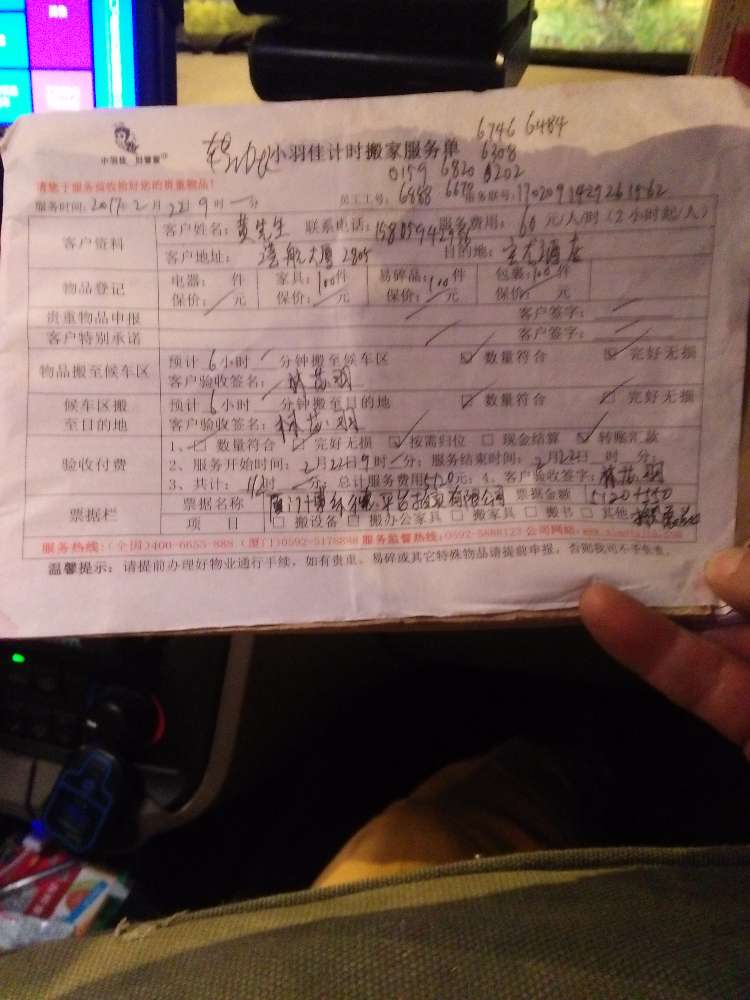 小羽佳计时搬家服务单
6746 6484
6308
0159 6820 0202
6888 6678
请您于服务前收拾好您的贵重物品!
服务时间:2017年2月22日9时一分 员工工号: 服务联号:
客户资料 客户姓名:黄先生 联系电话: 服务费用:60元/人/时(2小时起/人)
客户地址:港航大厦2805 目的地:
物品登记 电器: 件 家具:100件 易碎品:100件 包装:100件
保价: 元 保价: 元 保价: 元 保价: 元
贵重物品申报 客户签字:
客户特别承诺 客户签字:
物品搬至候车区 预计6小时 分钟搬至候车区 数量符合 完好无损
客户验收签名:
候车区搬至目的地 预计6小时 分钟搬至目的地 数量符合 完好无损
客户验收签名:
验收付费 1、 数量符合 完好无损 按需归位 现金结算 转账汇款
2、服务开始时间:2月22日9时 分;服务结束时间:2月22日 时 分;
3、共计: 时 分;总计服务费用5120元;4、客户验收签字:
票据栏 票据名称 票据金额 5120+550
项 目 搬设备 搬办公家具 搬家具 搬书 其他
服务热线:(全国)400-6655-888 (厦门)0592-5178888 服务监督热线:0592-5888123 公司网站:
温馨提示:请提前办理好物业通行手续,如有贵重、易碎或其它特殊物品请提前申报,否则我司不予负责。